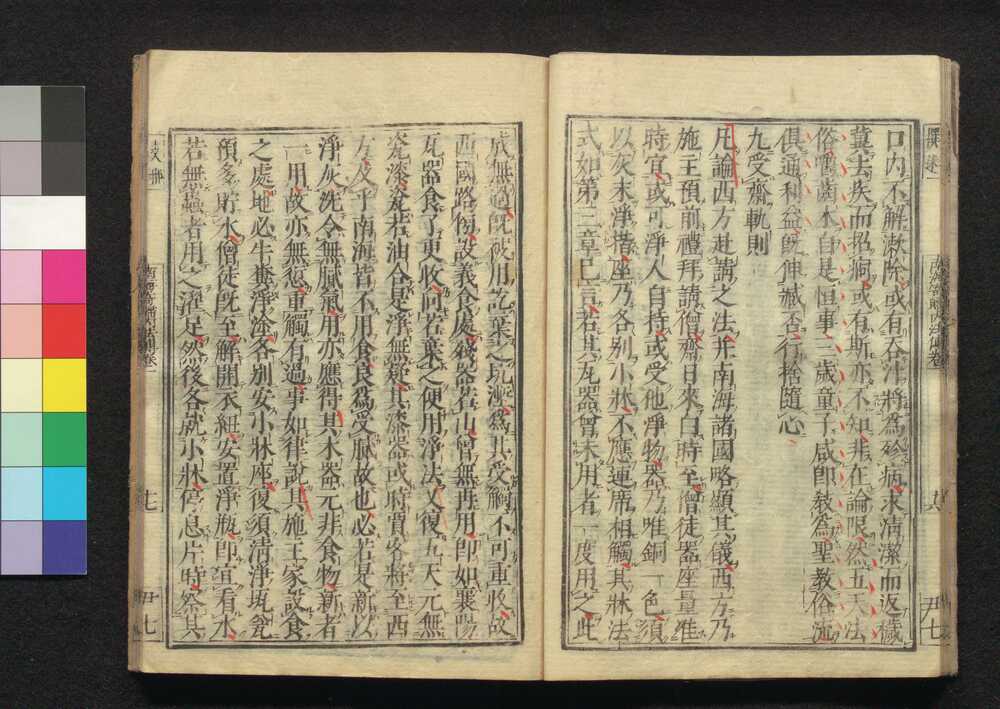 口內不解漱除或有吞汁將爲殄病求清潔而返穢
冀去疾而招痾或有斯亦不知非在論限然五天法
俗嚼齒木自是恒事三歲童子咸卽教爲聖教俗流
俱通利益旣伸臧否行捨隨心
九受齋軌則
凡論西方赴請之法并南海諸國略顯其儀西方乃
施主預前禮拜請僧齋日來白時至僧徒器座量准
時宜或可淨人自持或受他淨物器乃唯銅一色須
以灰末淨揩座乃各別小牀不應連席相觸其牀法
式如第三章已言若其瓦器曾未用者一度用之此
成無過旣被用訖棄之坑壍爲其受觸不可重收故
西國路傍設義食處殘器若山曾無再用卽如襄陽
瓦器食了更收向若棄之便用淨法又復五天元無
瓷漆瓷若油合是淨無疑其漆器或時賈客將至西
方及乎南海皆不用食良爲受膩故也必若是新以
淨灰洗令無膩氣用亦應得其木器元非食物新者
一用故亦無愆重觸有過事如律說其施主家設食
之處地必牛糞淨塗各別安小牀座復須清淨瓨瓮
預多貯水僧徒旣至解開衣紐安置淨瓶卽宜看水
若無蟲者用之濯足然後各就小牀停息片時察其